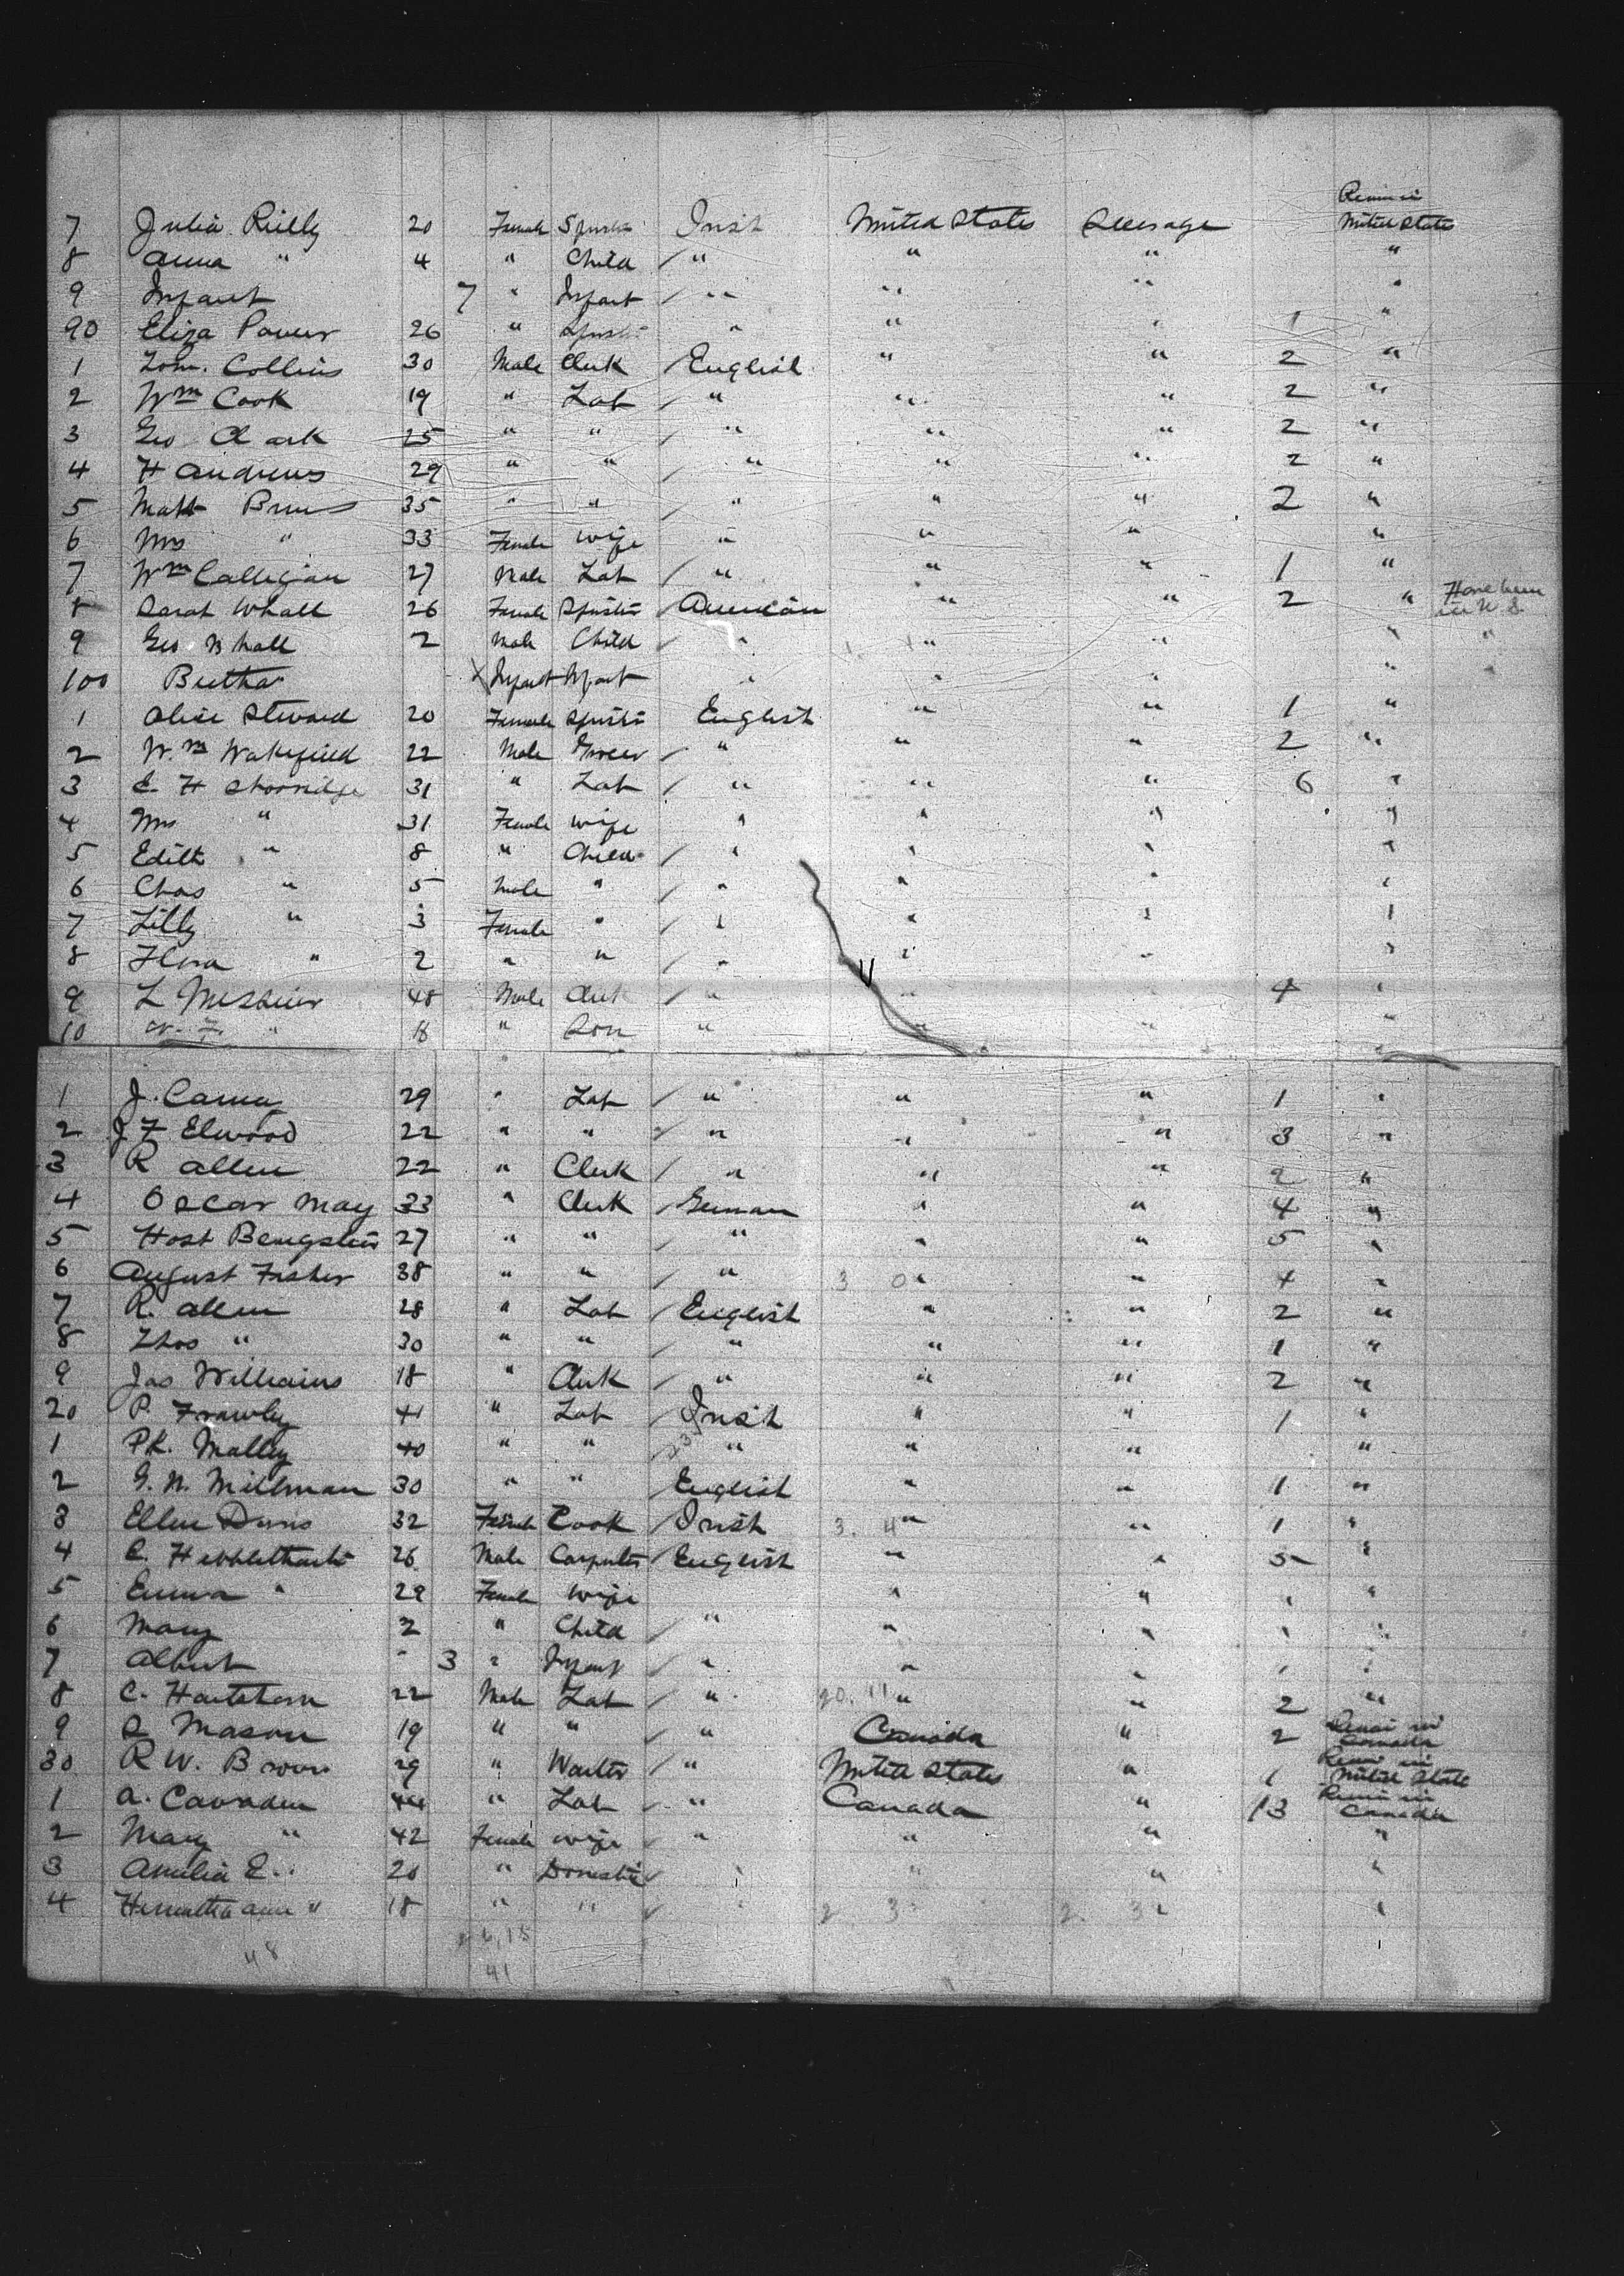 Remain in
7 Julia Reilly 20 Female Spinster Irish United States Steerage United States
8 Anna " 4 " Child / " " " "
9 Infant 7 " Infant / " " " "
90 Eliza Power 26 " Spinster " " " 1 "
1 Collins 30 Male Clerk / English " " 2 "
2 Wm Cook 19 " Lab / " " " 2 "
3 Geo Clark 25 " " / " " " 2 "
4 H Andrews 29 " " / " " " 2 "
5 Matt 35 " " / " " " 2 "
6 Mrs " 33 Female Wife " " " "
7 Wm Calligan 27 Male Lab / " " " 1 "
8 Sarah Whall 26 Female Spinster American " " 2 " Have been in U.S.
9 Geo Whall 2 Male Child " " " " "
100 Bertha X Infant Infant " " " "
1 Alice Steward 20 Female Spinster English " " 1 "
2 Wm Wakefield 22 Male Grocer / " " " 2 "
3 E H 31 " Lab / " " " 6 "
4 Mrs " 31 Female Wife " " " "
5 Edith " 8 " Child / " " " "
6 Chas " 5 Male " / " " " "
7 Lilly " 3 Female " / " " " "
8 Flora " 2 " " / " " " "
9 L 48 Male Clerk / " " " 4 "
10 " 18 " Son " " " "
1 J. 29 " Lab / " " " 1 "
2 J F Elwood 22 " " / " " " 3 "
3 R Allen 22 " Clerk / " " " 2 "
4 Oscar May 33 " Clerk / German " " 4 "
5 27 " " / " " " 5 "
6 August Fisher 38 " " / " 3 0 " " 4 "
7 R. Allen 28 " Lab / English " " 2 "
8 Thos " 30 " " / " " " 1 "
9 Jas Williams 18 " Clerk / " " " 2 "
20 P. Frawley 41 " Lab / Irish " " 1 "
1 Pk. Malley 40 " " " " " "
2 G. N. Millman 30 " " English " " 1 "
3 Ellen 32 Female Cook / Irish 3. 4 " " 1 "
4 26 Male Carpenter / English " " 5 "
5 Emma " 29 Female Wife " " " "
6 Mary 2 " Child / " " " " "
7 Albert - 3 " Infant / " " " " "
8 C. 22 Male Lab / " 20. 11 " " 2 "
9 Mason 19 " " " Canada " 2 Remain in Canada
30 R W. Brown 29 " Waiter / " United States " 1 Remain in United State
1 A. 44 " Lab " Canada " 13 Remain in Canada
2 Mary " 42 Female Wife " " " "
3 Amelia E. " 20 " Domestic " " " "
4 18 " " " 2. 3 2. 3 " "
48 15
41